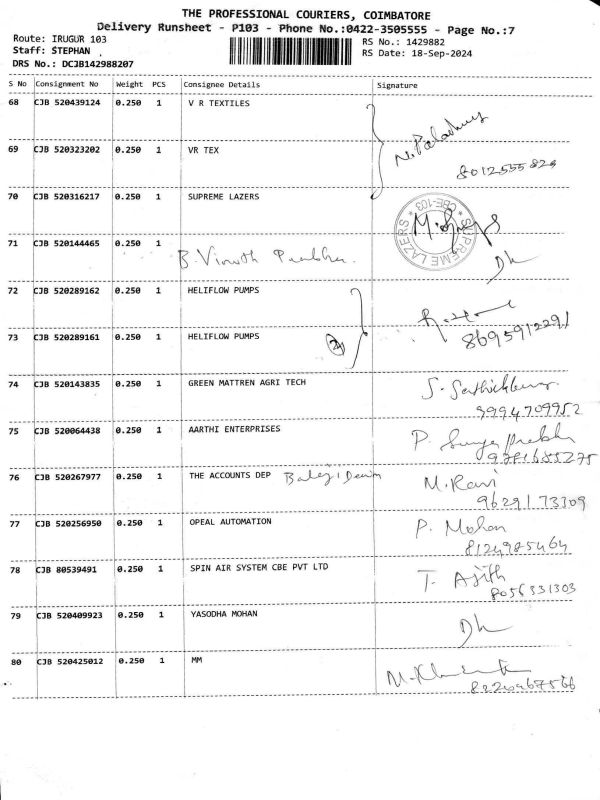 THE PROFESSIONAL COURIERS, COIMBATORE
Delivery Runsheet - P103 - Phone No.:0422-3505555 - Page No.:7
Route: IRUGUR 103 RS No.: 1429882
Staff: STEPHAN RS Date: 18-Sep-2024
DRS No.: DCJB142988207
S No Consignment No Weight PCS Consignee Details Signature
68 CJB 520439124 0.250 1 V R TEXTILES
69 CJB 520323202 0.250 1 VR TEX
70 CJB 520316217 0.250 1 SUPREME LAZERS
SUPREME LAZERS * CBE-103 *
71 CJB 520144465 0.250 1 B. Vinoth Dh
72 CJB 520289162 0.250 1 HELIFLOW PUMPS
73 CJB 520289161 0.250 1 HELIFLOW PUMPS 2 8695912291
74 CJB 520143835 0.250 1 GREEN MATTREN AGRI TECH
9994709952
75 CJB 520064438 0.250 1 AARTHI ENTERPRISES
76 CJB 520267977 0.250 1 THE ACCOUNTS DEP Balaji M. Ravi
9629173309
77 CJB 520256950 0.250 1 OPEAL AUTOMATION P. Mohan
8124985464
78 CJB 80539491 0.250 1 SPIN AIR SYSTEM CBE PVT LTD T. Ajith
8056331303
79 CJB 520409923 0.250 1 YASODHA MOHAN Dh
80 CJB 520425012 0.250 1 MM